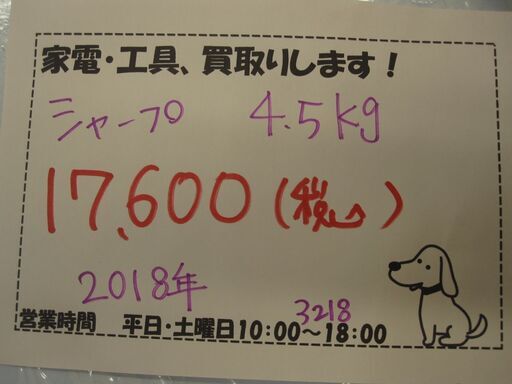 家電・工具、買取りします！
シャープ 4.5kg
17,600(税込)
2018年
3218
営業時間 平日・土曜日10:00～18:00